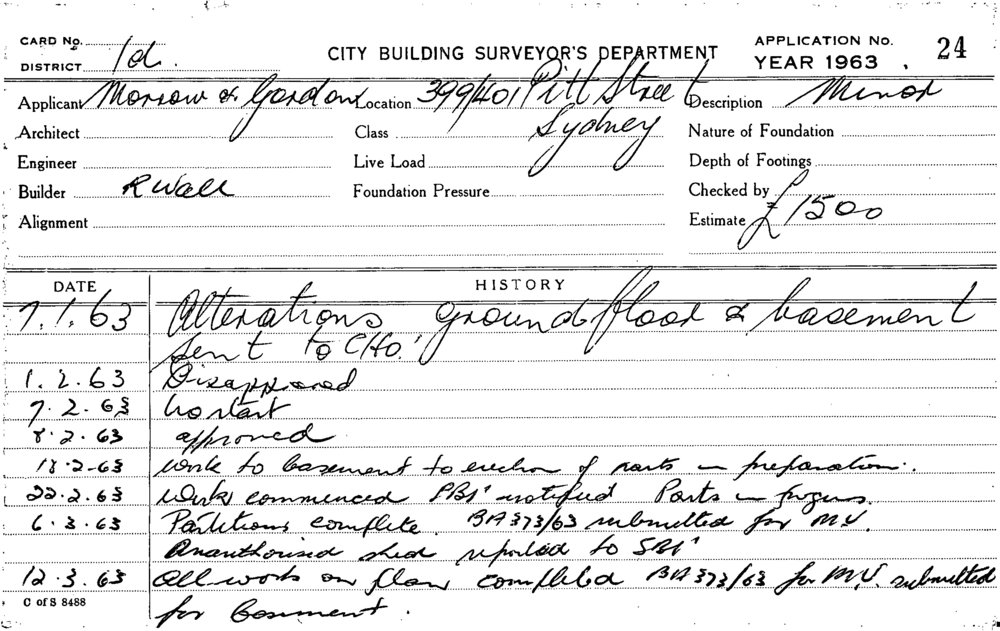 CARD No.
DISTRICT 1d.
CITY BUILDING SURVEYOR'S DEPARTMENT
APPLICATION No. 24
YEAR 1963
Applicant Morrow & Gordon Location 399/401 Pitt Street Description Minor
Architect Class Sydney Nature of Foundation
Engineer Live Load Depth of Footings
Builder R Wall Foundation Pressure Checked by
Alignment Estimate £1500
DATE HISTORY
7.1.63 Alterations ground floor & basement
sent to CHO.
1.2.63 Disapproved
7.2.63 No start
8.2.63 approved
18.2-63 work to basement to erection of parts in preparation.
22.2.63 Work commenced notified Parts in progress.
6.3.63 Partitions complete. BA373/63 submitted for M.V.
Unauthorised shed reported to SBI
12.3.63 All work on plan completed BA 373/63 for M.V. submitted
C of S 8488
for basement.